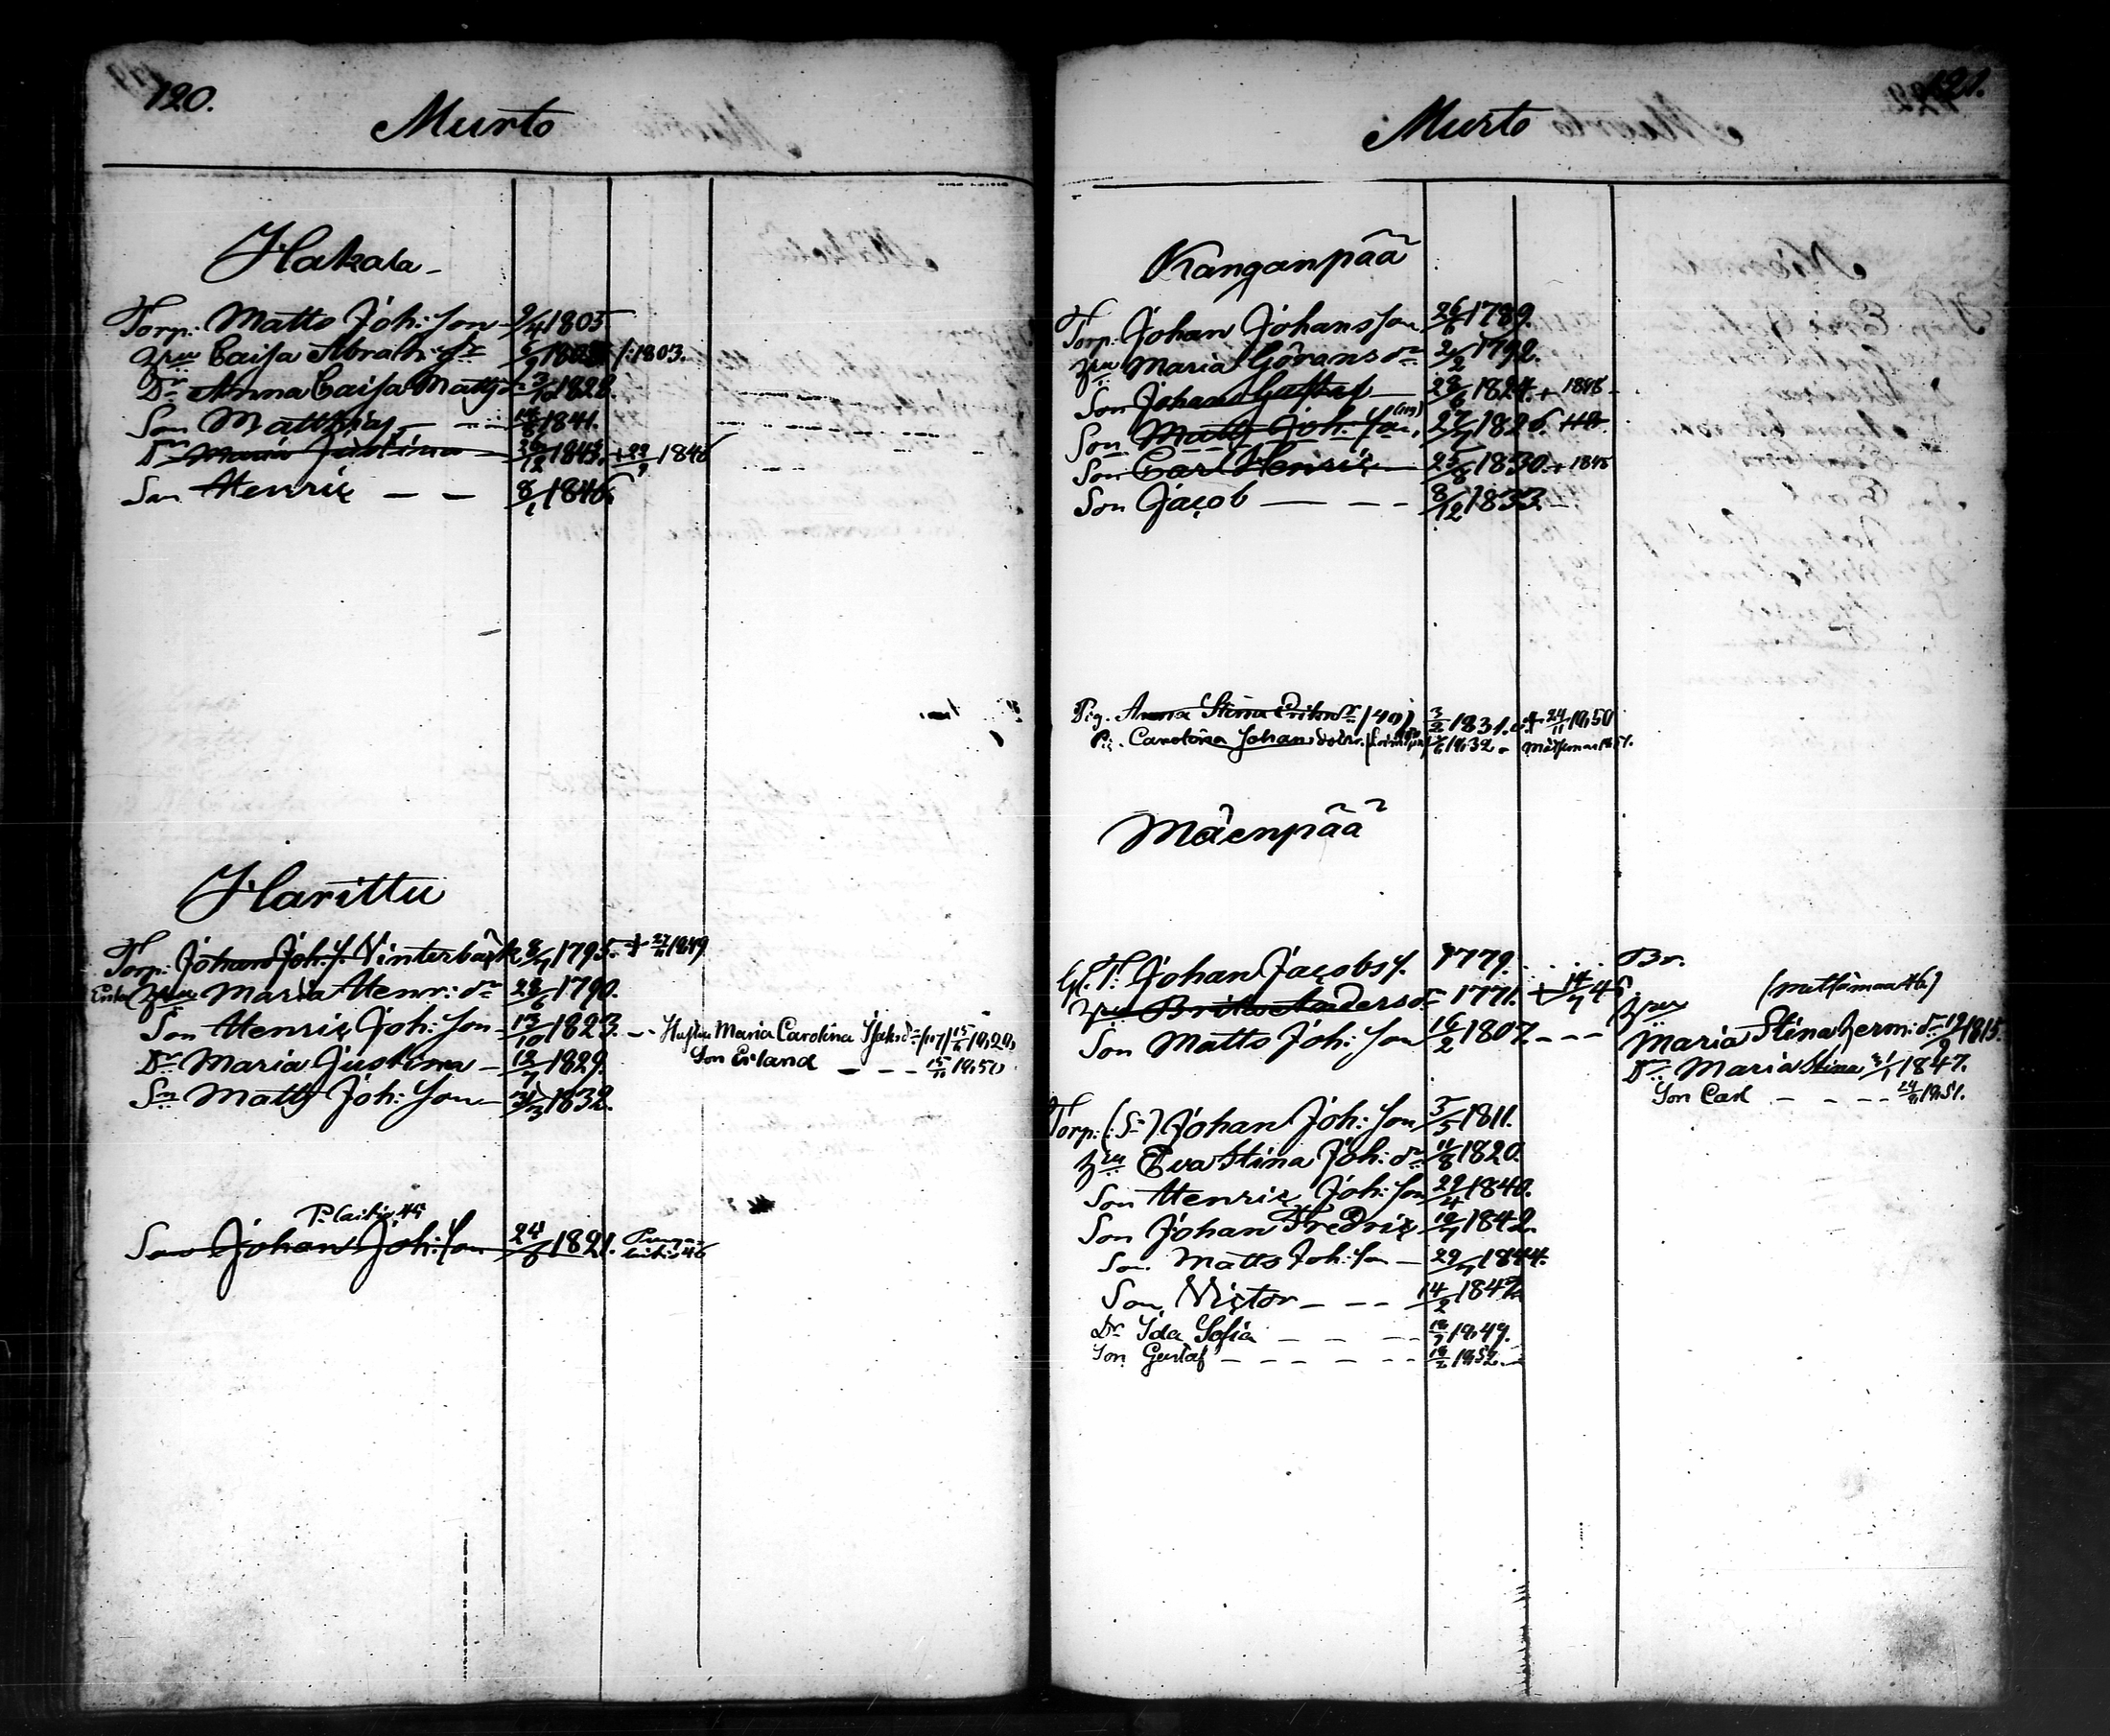 120.
Murto
Hakala
Torp. Matts Joh: Son 9/4 1805
Hru Caisa Abrah: dr 1803.
Dr Anna Caisa Matts dr 1828.
Son Matthias 1841.
Dr Maria Justina 1843. + 22/9 1846
Son Henric 8/1 1846.
Harittu
Torp. Johan Joh: S. Vinterbäck 8/7 1795. + 1849
Enka Hru Maria Henr: dr 28/6 1790.
Son Henric Joh: Son 13/10 1823. Hustru Maria Carolina
Son Erland
Dr Maria Justina 12/7 1829.
Sn Matts Joh: Son 1832.
Son Johan Joh: Son 24/6 1821.
121.
Murto
Kanganpää
Torp. Johan Johansson 26/6 1789.
Hru Maria Görans dr 2/2 1792.
Son Johan Gustaf 28/6 1824.
Son Matts Joh: Son 27/7 1826.
Son Carl Henric 25/8 1830. + 1845
Son Jacob 8/12 1833.
Pig. Anna Stina Eriks dr 3/2 1831. + 24/11 1850
Pig. Carolina Johans dotter 1832.
Mäenpää
Gl. T. Johan Jacobs S. 1779. Br.
Hru Brita Anders dr 1771. + 14/7 45 Hru
Son Matts Joh: Son 16/2 1807. Maria Stina Herm: dr 1815.
Dr Maria Stina 1847.
Son Carl 1851.
Torp. (: Sn :) Johan Joh: Son 5/5 1811.
Hru Eva Stina Joh: dr 11/8 1820.
Son Henric Joh: Son 29/4 1840.
Son Johan Fredric 12/7 1842.
Son Matts Joh: Son 29/7 1844.
Son Victor 14/2 1847.
Dr Ida Sofia 1849.
Son Gustaf 1852.